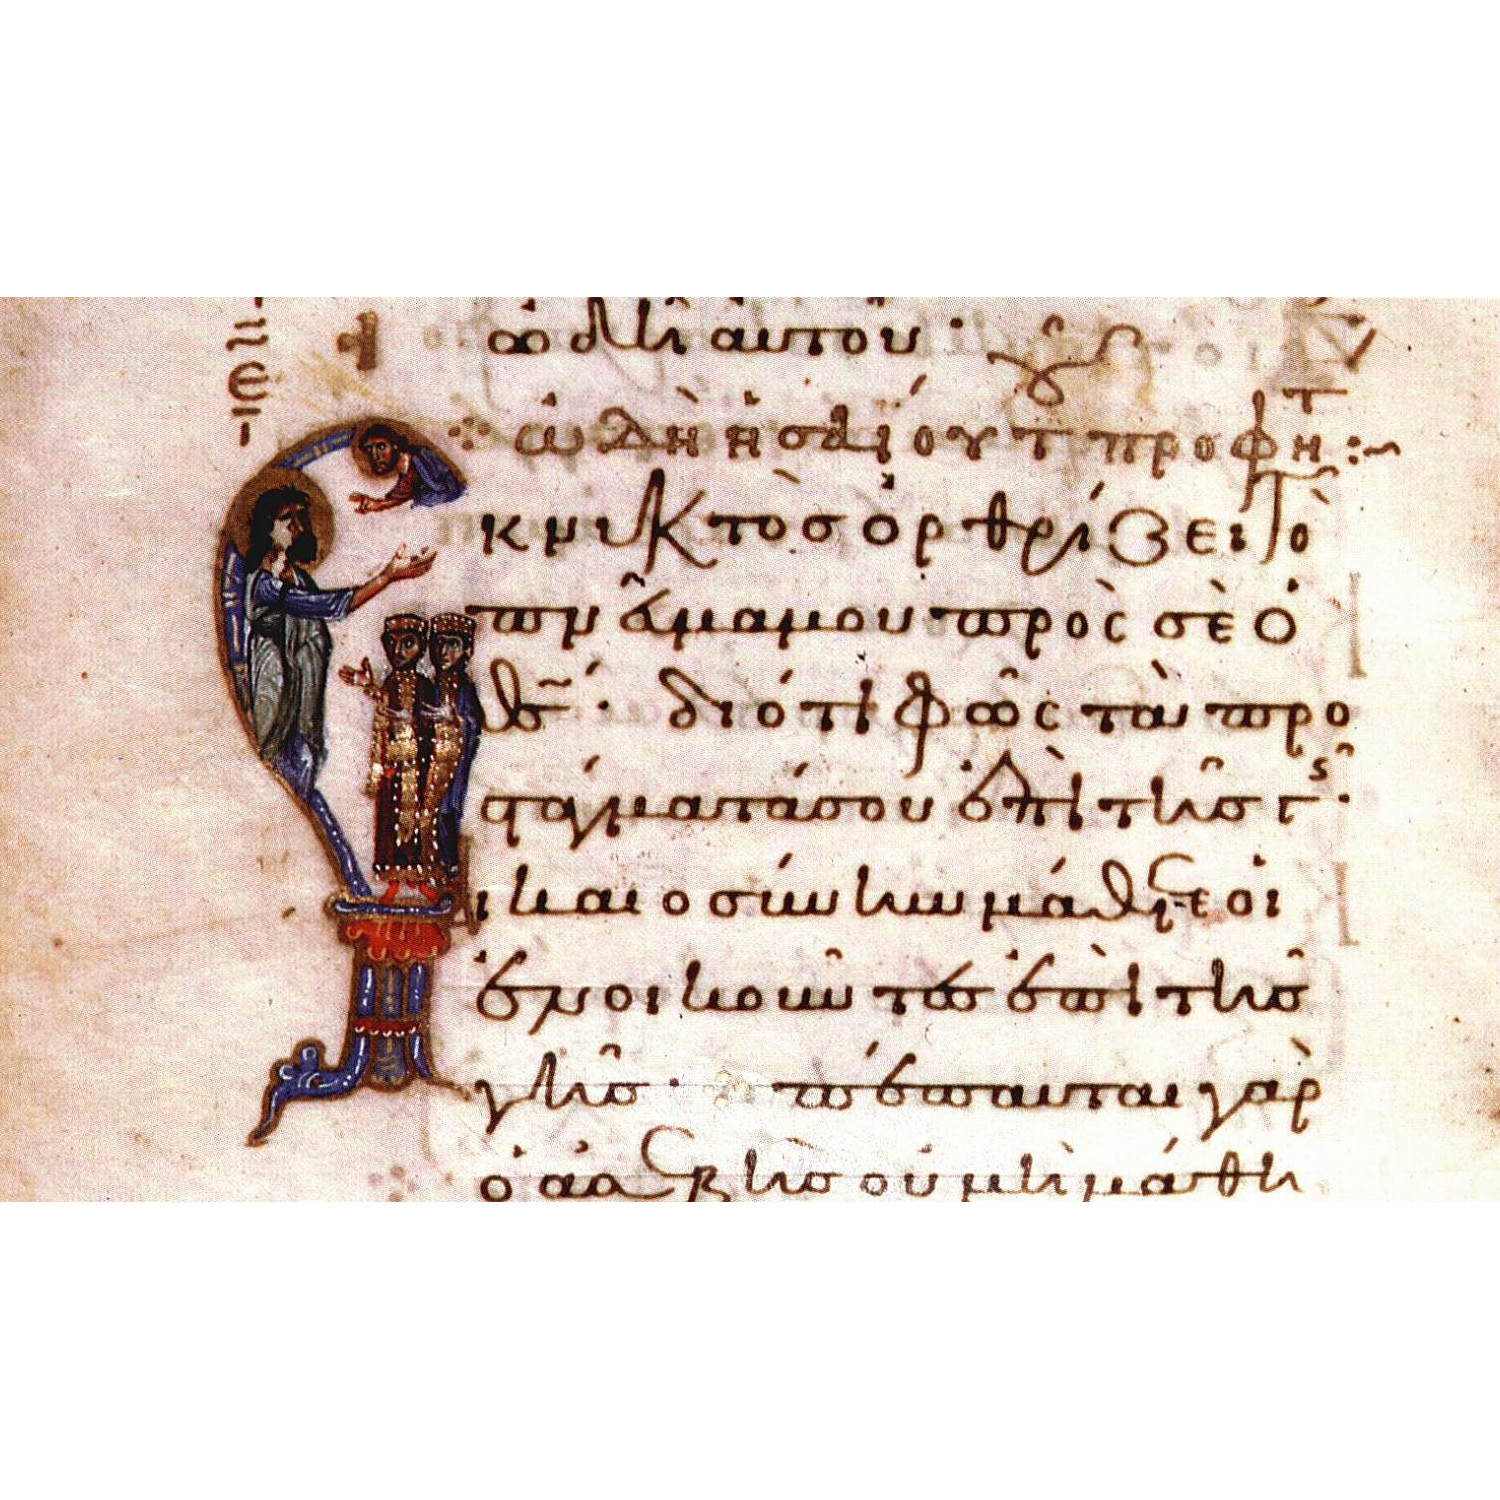 ᾠδὴ αὐτοῦ·
ᾠδὴ ἡσαΐου τ προφητ :~
κ νυκτὸς ὀρθρίζει τὸ
πνᾶ μου πρὸς σὲ ὁ
θς· διότι φῶς τὰ προ
στάγματά σου ἐπὶ τῆς γῆς·
δικαιοσύνην μάθετε οἱ
ἐνοικοῦντες ἐπὶ τῆς
γῆς· πέπαυται γὰρ
ὁ ἀσεβὴς οὐ μὴ μάθῃ